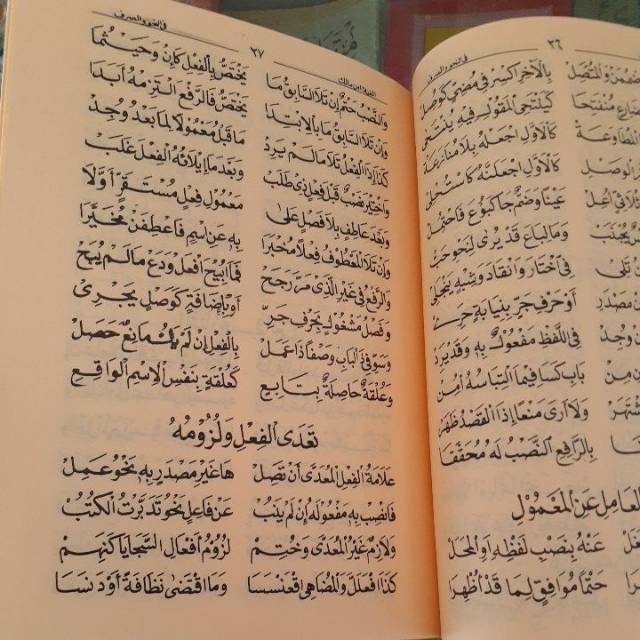 في النحو والصرف ٣٦
ضُمِّنَ وَالْمُتَّصِلْ بِالْآخِرِ اكْسِرْ فِي مُضِيٍّ كَوُصِلْ
مُنْفَتِحَا كَيَنْتَحِي الْمَقُولِ فِيهِ يُنْتَحَى
الْمُطَاوَعَهْ كَالْأَوَّلِ اجْعَلْهُ بِلَا مُنَازَعَهْ
الْوَصْلِ كَالْأَوَّلِ اجْعَلَنَّهُ كَاسْتُحْلِي
أُعِلّْ عَيْنًا وَضَمٌّ جَا كَبُوعَ فَاحْتُمِلْ
يُجْتَنَبْ وَمَا لِبَاعَ قَدْ يُرَى لِنَحْوِ حَبّْ
تَلِي فِي اخْتَارَ وَانْقَادَ وَشِبْهٍ يَنْجَلِي
مَصْدَرِ أَوْ حَرْفِ جَرٍّ بِنِيَابَةٍ حَرِي
وُجِدْ فِي اللَّفْظِ مَفْعُولٌ بِهِ وَقَدْ يَرِدْ
مِنْ بَابِ كَسَا فِيمَا الْتِبَاسُهُ أُمِنْ
اشْتَهَرْ وَلَا أَرَى مَنْعًا إِذَا الْقَصْدُ ظَهَرْ
بِالرَّافِعِ النَّصْبُ لَهُ مُحَقَّقَا
الْعَامِلِ عَنِ الْمَعْمُولِ
عَنْهُ بِنَصْبِ لَفْظِهِ أَوِ الْمَحَلّْ
حَتْمًا مُوَافِقٍ لِمَا قَدْ أُظْهِرَا
ألفية ابن مالك ٣٧ في النحو والصرف
وَالنَّصْبُ حَتْمٌ إِنْ تَلَا السَّابِقُ مَا يَخْتَصُّ بِالْفِعْلِ كَإِنْ وَحَيْثُمَا
وَإِنْ تَلَا السَّابِقُ مَا بِالِابْتِدَا يَخْتَصُّ فَالرَّفْعَ الْتَزِمْهُ أَبَدَا
كَذَا إِذَا الْفِعْلُ تَلَا مَا لَمْ يَرِدْ مَا قَبْلُ مَعْمُولًا لِمَا بَعْدُ وُجِدْ
وَاخْتِيرَ نَصْبٌ قَبْلَ فِعْلٍ ذِي طَلَبْ وَبَعْدَ مَا إِيلَاؤُهُ الْفِعْلَ غَلَبْ
وَبَعْدَ عَاطِفٍ بِلَا فَصْلٍ عَلَى مَعْمُولِ فِعْلٍ مُسْتَقِرٍّ أَوَّلَا
وَإِنْ تَلَا الْمَعْطُوفُ فِعْلًا مُخْبَرَا بِهِ عَنِ اسْمٍ فَاعْطِفَنْ مُخَيَّرَا
وَالرَّفْعُ فِي غَيْرِ الَّذِي مَرَّ رَجَحْ فَمَا أُبِيحَ افْعَلْ وَدَعْ مَا لَمْ يُبَحْ
وَفَصْلُ مَشْغُولٍ بِحَرْفِ جَرِّ أَوْ بِإِضَافَةٍ كَوَصْلٍ يَجْرِي
وَسَوِّ فِي ذَا الْبَابِ وَصْفًا ذَا عَمَلْ بِالْفِعْلِ إِنْ لَمْ يَكُ مَانِعٌ حَصَلْ
وَعُلْقَةٌ حَاصِلَةٌ بِتَابِعِ كَعُلْقَةٍ بِنَفْسِ الِاسْمِ الْوَاقِعِ
تَعَدِّي الْفِعْلِ وَلُزُومُهُ
عَلَامَةُ الْفِعْلِ الْمُعَدَّى أَنْ تَصِلْ هَا غَيْرِ مَصْدَرٍ بِهِ نَحْوُ عَمِلْ
فَانْصِبْ بِهِ مَفْعُولَهُ إِنْ لَمْ يَنُبْ عَنْ فَاعِلٍ نَحْوُ تَدَبَّرْتُ الْكُتُبْ
وَلَازِمٌ غَيْرُ الْمُعَدَّى وَحُتِمْ لُزُومُ أَفْعَالِ السَّجَايَا كَنَهِمْ
كَذَا افْعَلَلَّ وَالْمُضَاهِي اقْعَنْسَسَا وَمَا اقْتَضَى نَظَافَةً أَوْ دَنَسَا